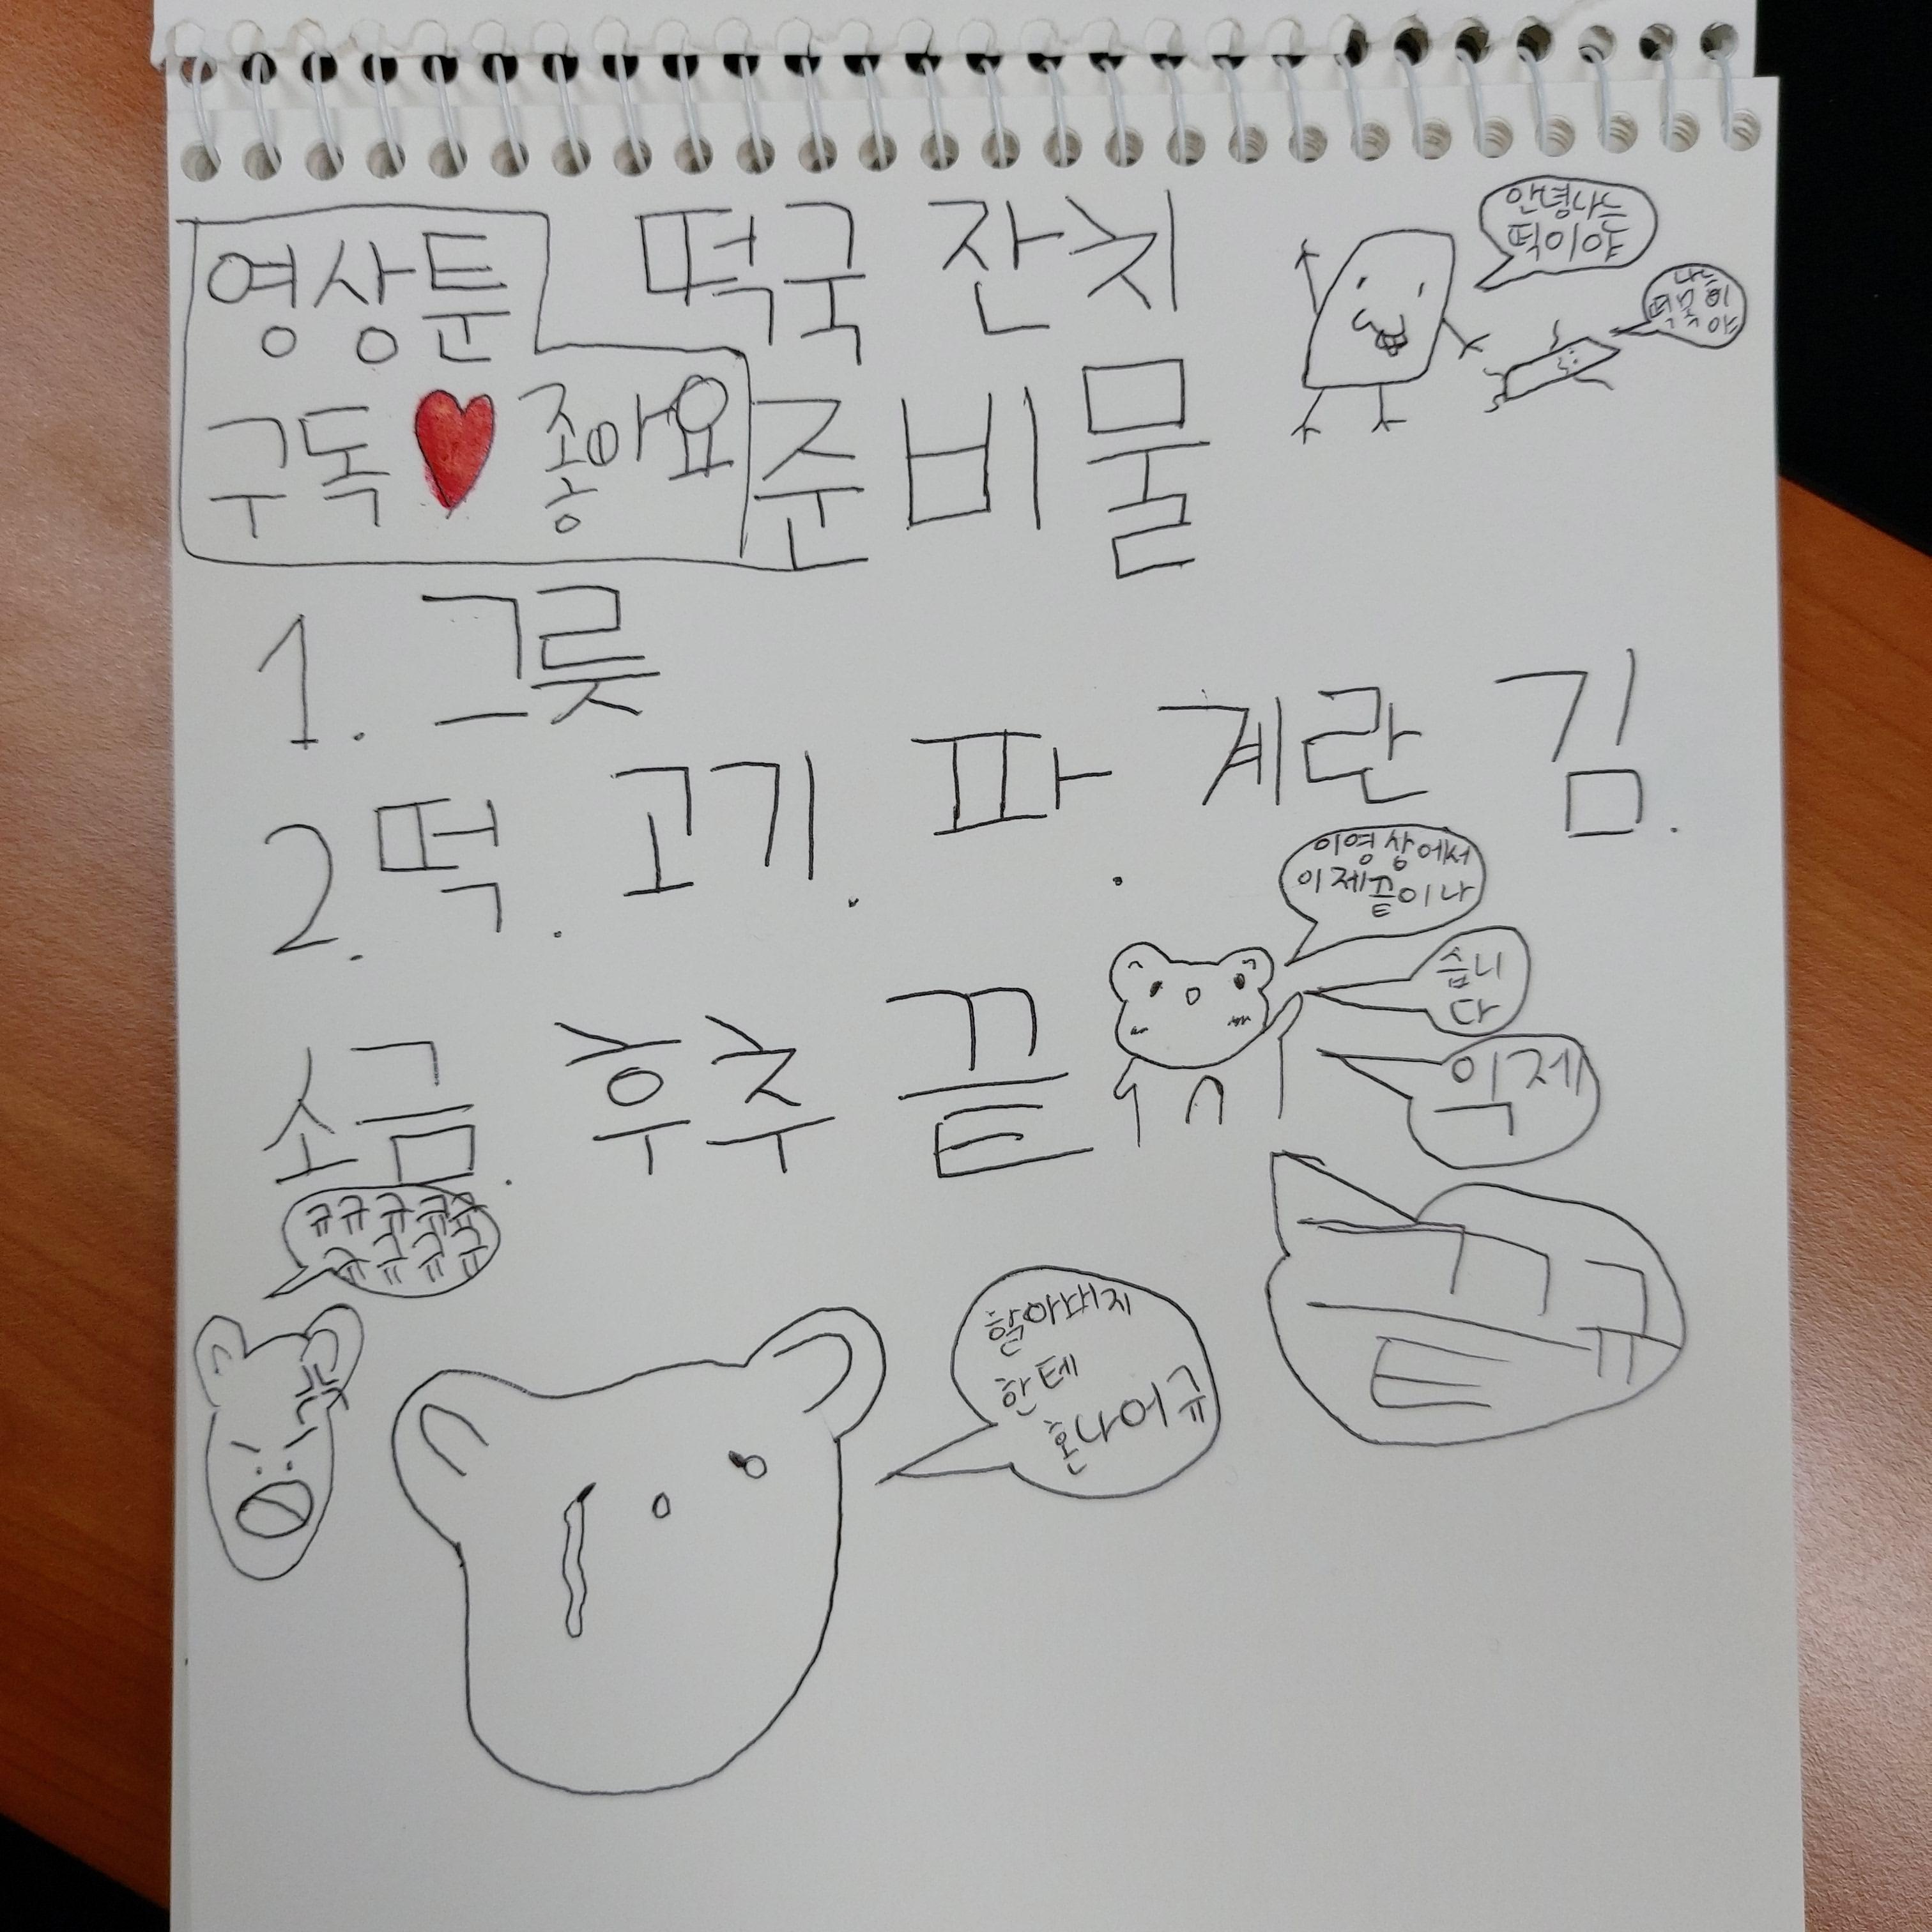 영상툰
구독 좋아요
떡국 잔치
준비물
안녕나는
떡이야
나는
1. 그릇
2. 떡. 고기. 파. 계란 김.
소금. 후추 끝
이영상에서
이제끝이나
습니
다
익제
끝
규규규규규
규규규규
할아버지
한테
혼나어규